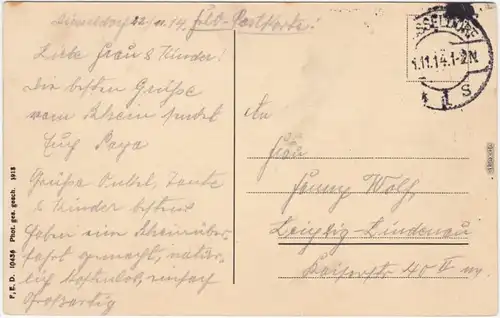 Düsseldorf 22/11.14. Feld-Postkarte!
Liebe Frau & Kinder!
Die besten Grüße
vom Rhein sendet
Euch Papa
Grüße Onkel, Tante
& Kinder bestens
haben eine Rheinüber-
fahrt gemacht, natür-
lich kostenlos, einfach
Großartig
DÜSSELDORF
.11.14.1-2N
1 S
An
Frau
Fanny Wolf,
Leipzig-Lindenau
Kaiserstr 40 II
P.E.D. 10436 Phot. ges. gesch. 1913